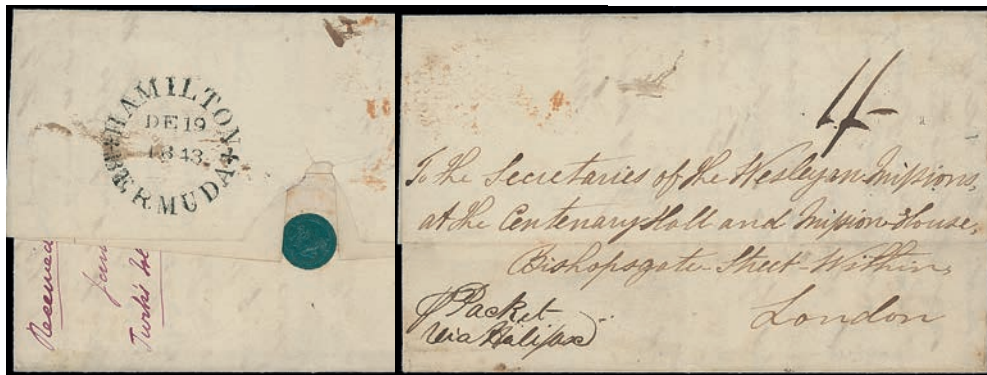 HAMILTON
DE 19
1843
BERMUDA
Received
Turks Isl
1/-
To the Secretaries of the Wesleyan Missions,
at the Centenary Hall and Mission House,
Bishopsgate Street Within,
London
Packet
via Halifax